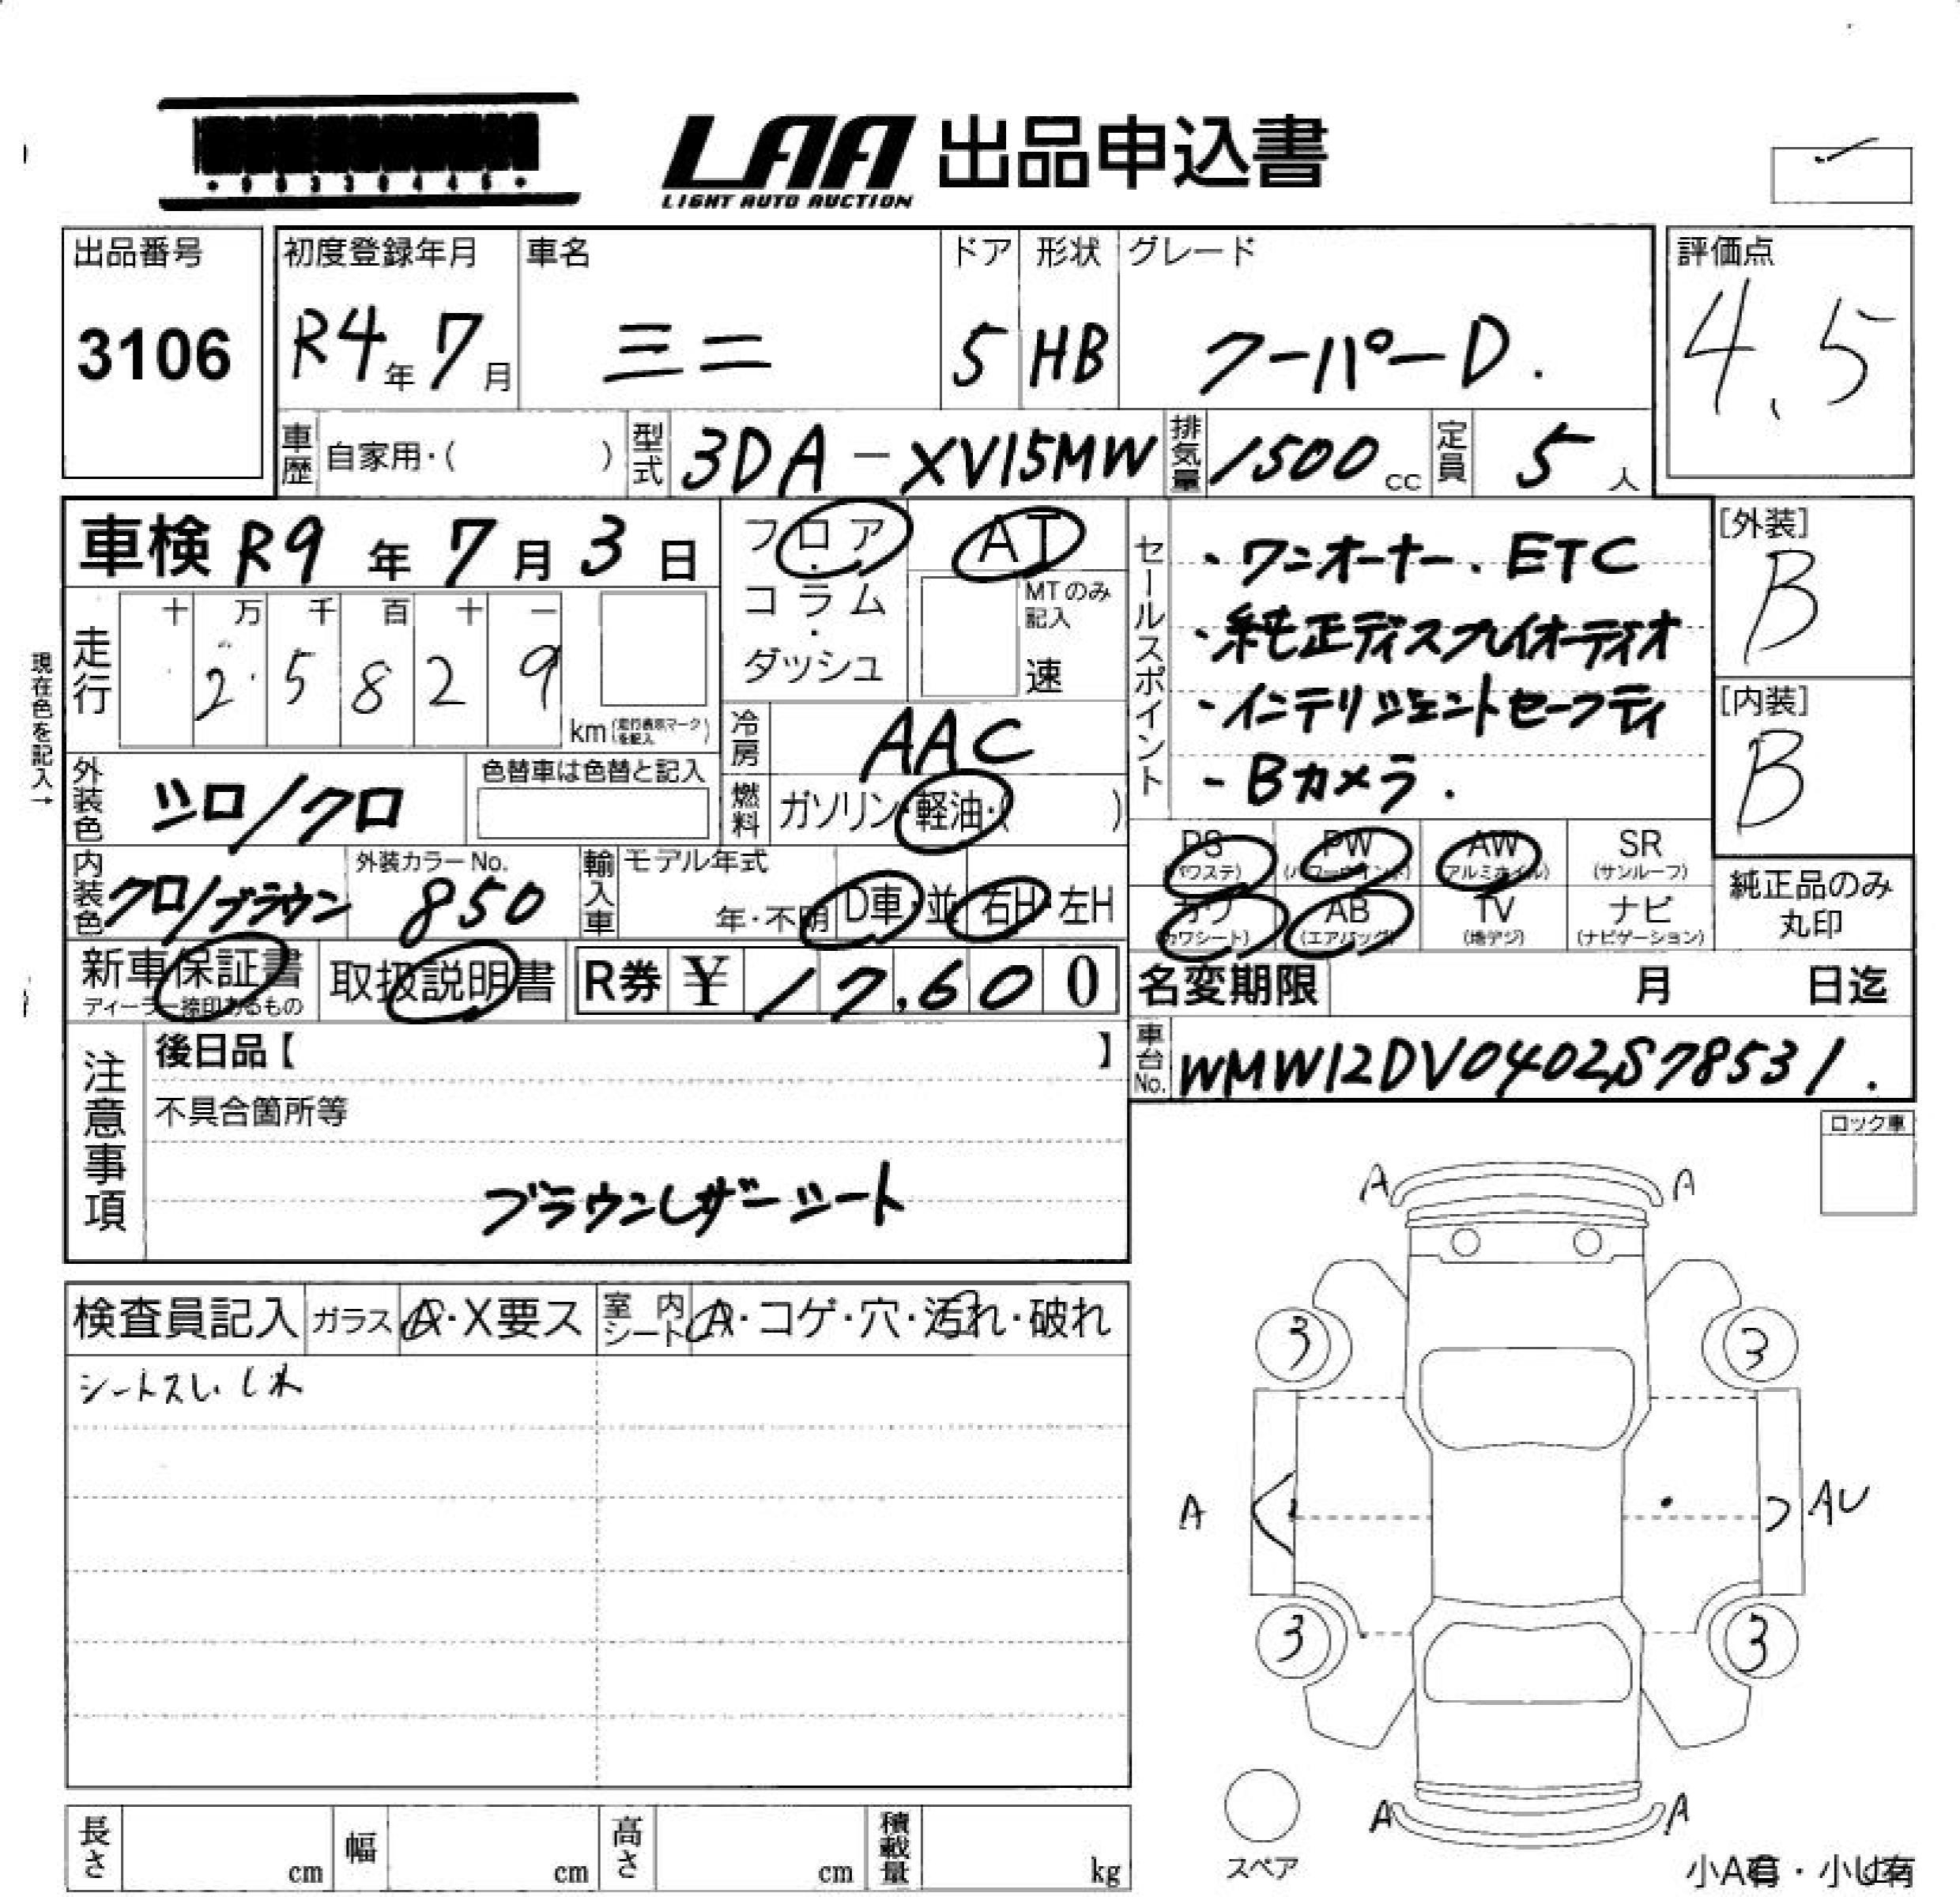 LAA 出品申込書
LIGHT AUTO AUCTION
出品番号
3106
初度登録年月
R4年7月
車名
ミニ
ドア
5
形状
HB
グレード
クーパーD.
評価点
4.5
車歴
自家用・( )
型式
3DA-XV15MW
排気量
1500cc
定員
5人
車検 R9年7月3日
現在色を記入→
走行
十 万 千 百 十 一
2 5 8 2 9
km (走行表示マークを記入)
フロア・コラム・ダッシュ
AT
MTのみ記入
速
セールスポイント
・ワンオーナー. ETC
・純正ディスプレイオーディオ
・インテリジェントセーフティ
- Bカメラ.
[外装]
B
[内装]
B
外装色
シロ/クロ
色替車は色替と記入
冷房
AAC
燃料
ガソリン・軽油・( )
内装色
クロ/ブラウン
外装カラーNo.
850
輸入車
モデル年式
年・不明
D車・並
右H・左H
PS (パワステ)
PW (パワーウインド)
AW (アルミホイル)
SR (サンルーフ)
カワ (カワシート)
AB (エアバッグ)
TV (地デジ)
ナビ (ナビゲーション)
純正品のみ丸印
新車保証書
ディーラー捺印あるもの
取扱説明書
R券 ¥ 17,600
名変期限 月 日迄
車台No.
WMW12DV0402S78531.
注意事項
後日品【 】
不具合箇所等
ブラウンレザーシート
ロック車
検査員記入
ガラス
A・X要ス
室内シート
A・コゲ・穴・汚れ・破れ
A A
3 3
A AU
3 3
A A
スペア
長さ cm
幅 cm
高さ cm
積載量 kg